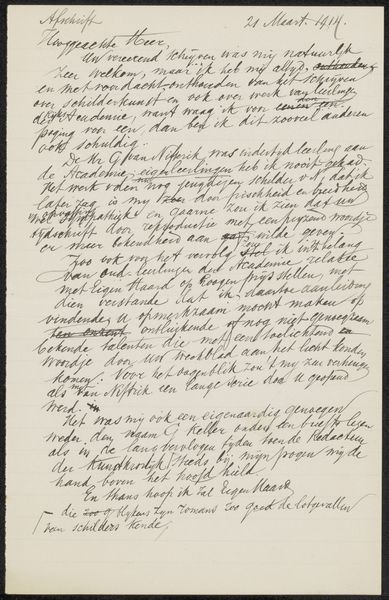 Afschrift 21 Maart 1914.
Hooggeachte Heer,
Uw vereerend schrijven was mij natuurlijk
zeer welkom, maar ik heb mij altijd
en met voordacht onthouden van het schrijven
over schilderkunst en ook over werk van leerlingen
der Academie, want waag ik voor een
poging voor een, dan ben ik dit zooveel anderen
ook schuldig.
De Hr G van Nifterik was indertijd leerling aan
de Academie, eigen leerlingen heb ik nooit gehad.
Het werk v. den nog jeugdigen schilder v N, dat ik
later zag is mij door frischheid en breedheid
sympathiek en gaarne zou ik zien dat uw
tijdschrift door reproductie met een prijzend woordje
er meer bekendheid aan wilde geven.
Zoo ook voor het vervolg zou ik in 't belang
van oud-leerlingen der Academie relatie
met Eigen Haard op hoogen prijs stellen, met
dien verstande dat ik, daartoe aanleiding
vindende, U opmerkzaam mocht maken op
ontluikende of nog niet genoegzaam
bekende talenten die met een toelichtend
woordje door Uw weekblad aan het licht konden
komen. Voor het oogenblik zou 't mij zeer verheugen
als van Nifterik een lange serie door U gesteund
werd.
Het was mij ook een eigenaardig genoegen
weder den naam G Keller onder een brief te lezen
als in de lang vervlogen tijden toen de Redacteur
der Kunstkronijk steeds bij mijn pogen mij de
hand boven het hoofd hield.
En thans hoop ik zal Eigen Haard
die blijkens zijn romans zoo goed de lotgevallen
van schilders kende,